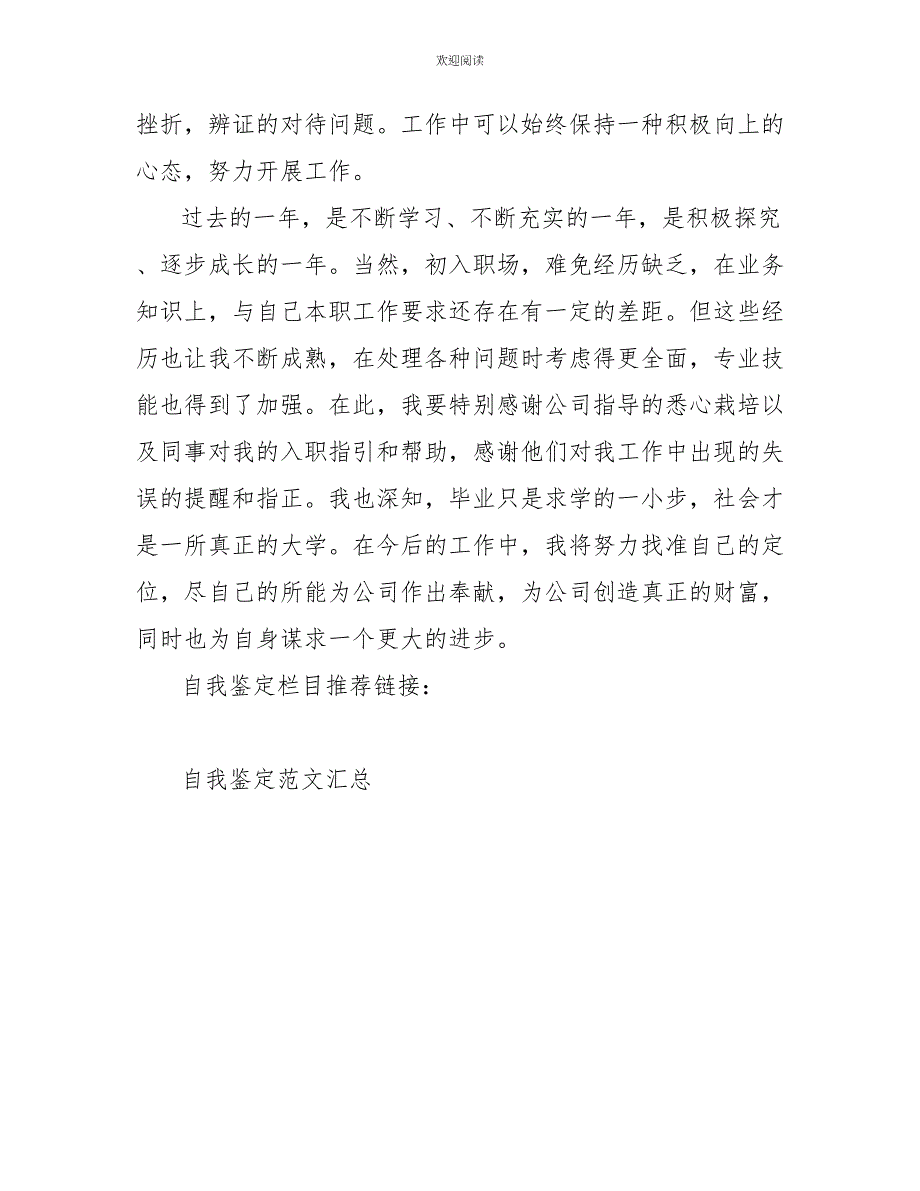 欢迎阅读
挫折，辨证的对待问题。工作中可以始终保持一种积极向上的
心态，努力开展工作。
过去的一年，是不断学习、不断充实的一年，是积极探究
、逐步成长的一年。当然，初入职场，难免经历缺乏，在业务
知识上，与自己本职工作要求还存在有一定的差距。但这些经
历也让我不断成熟，在处理各种问题时考虑得更全面，专业技
能也得到了加强。在此，我要特别感谢公司指导的悉心栽培以
及同事对我的入职指引和帮助，感谢他们对我工作中出现的失
误的提醒和指正。我也深知，毕业只是求学的一小步，社会才
是一所真正的大学。在今后的工作中，我将努力找准自己的定
位，尽自己的所能为公司作出奉献，为公司创造真正的财富，
同时也为自身谋求一个更大的进步。
自我鉴定栏目推荐链接：
自我鉴定范文汇总